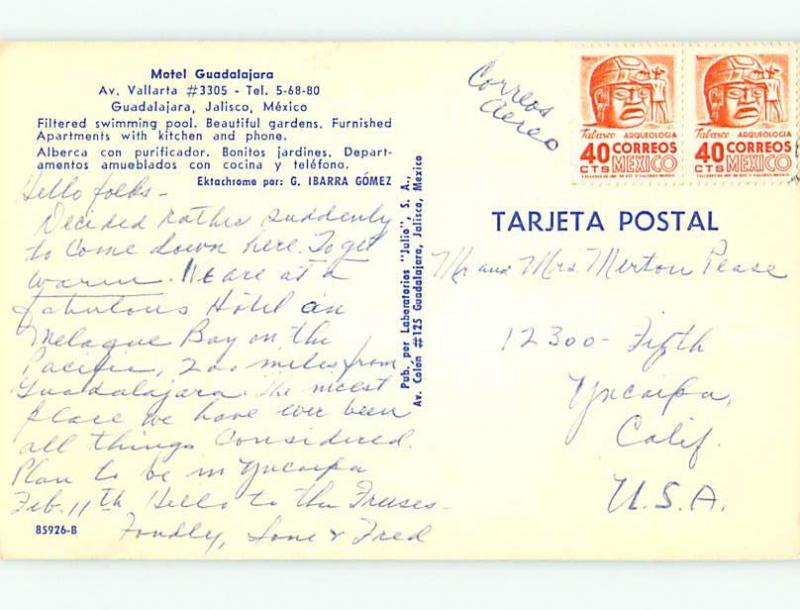 Motel Guadalajara
Av. Vallarta #3305 - Tel. 5-68-80
Guadalajara, Jalisco, México
Filtered swimming pool. Beautiful gardens. Furnished
Apartments with kitchen and phone.
Alberca con purificador. Bonitos jardines. Depart-
amentos amueblados con cocina y teléfono.
Ektachrome por: G. IBARRA GÓMEZ
Hello folks -
Decided rather suddenly
to come down here. To get
warm. We are at a
fabulous Hotel on
Melaque Bay on the
Pacific, 200 miles from
Guadalajara. The nicest
place we have ever been
all things considered.
Plan to be in Yucaipa
Feb. 11th Hello to the
Fondly, & Fred
85926-B
Pub. por Laboratorios "Julio", S. A.,
Av. Colón #125 Guadalajara, Jalisco, Mexico
Correos
Aereo
Tabasco ARQUEOLOGIA
40 CTS CORREOS
MEXICO
Tabasco ARQUEOLOGIA
40 CTS CORREOS
MEXICO
TARJETA POSTAL
Mr and Mrs Merton Pease
12300 - Fifth
Yucaipa,
Calif.
U.S.A.